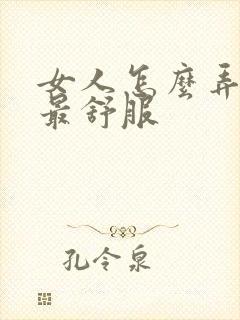 女人怎麼弄
最舒服
孔令泉